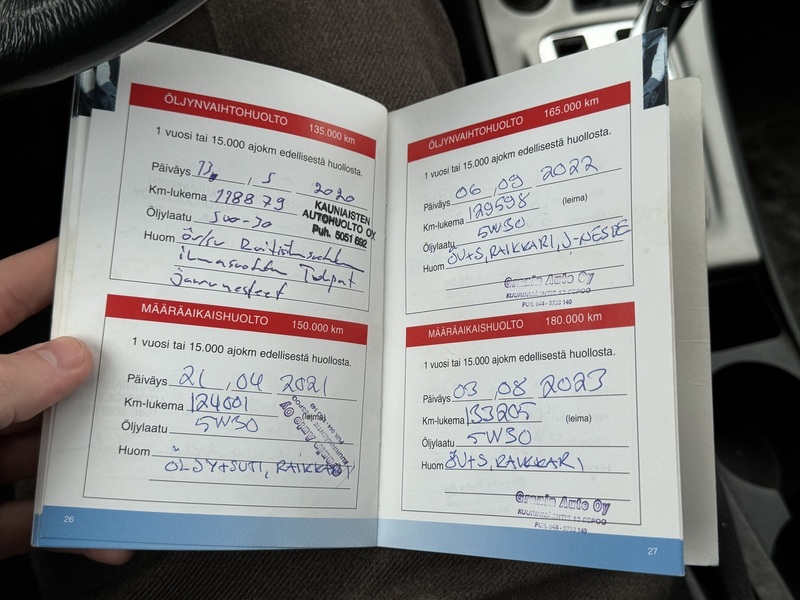 ÖLJYNVAIHTOHUOLTO 135.000 km
1 vuosi tai 15.000 ajokm edellisestä huollosta.
Päiväys 5 2020
Km-lukema 118879
Öljylaatu 5w-30
KAUNIAISTEN
AUTOHUOLTO OY
Puh. 5051 692
Huom
ilmasuodatin Tulpat
jarrunesteet
MÄÄRÄAIKAISHUOLTO 150.000 km
1 vuosi tai 15.000 ajokm edellisestä huollosta.
Päiväys 21 . 04 2021
Km-lukema 124001 (leima)
Öljylaatu 5W30
Huom
ÖLJY+SUTI, RAIKKARI
26
ÖLJYNVAIHTOHUOLTO 165.000 km
1 vuosi tai 15.000 ajokm edellisestä huollosta.
Päiväys 06 . 09 2022
Km-lukema 129598 (leima)
Öljylaatu 5W30
Huom ÖV+S, RAIKKARI, J-NESTE
Auto Oy
MÄÄRÄAIKAISHUOLTO 180.000 km
1 vuosi tai 15.000 ajokm edellisestä huollosta.
Päiväys 03 . 08 2023
Km-lukema 133205 (leima)
Öljylaatu 5W30
Huom ÖV+S, RAIKKARI
Auto Oy
27